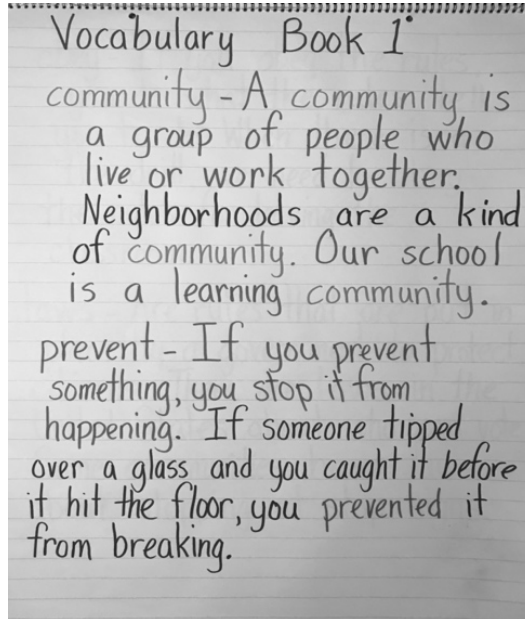 Vocabulary Book 1
community - A community is
a group of people who
live or work together.
Neighborhoods are a kind
of community. Our school
is a learning community.
prevent - If you prevent
something, you stop it from
happening. If someone tipped
over a glass and you caught it before
it hit the floor, you prevented it
from breaking.